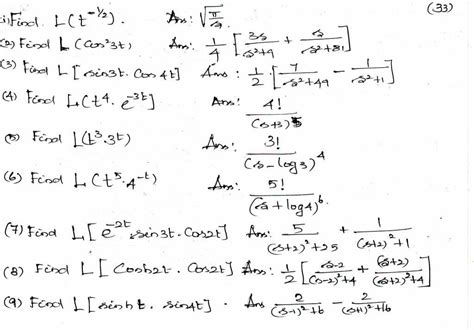 (33)
(1) Find L(t^{-1/2}). Ans: √(π/s)
(2) Find L(cos³3t) Ans: 1/4 [3s/(s²+9 + s/(s²+81]
(3) Find L[sin3t. cos4t] Ans: 1/2 [7/(s²+49 - 1/(s²+1]
(4) Find L(t⁴. e^{-3t}] Ans: 4!/(s+3)⁵
(5) Find L(t³.3t) Ans: 3!/(s-log3)⁴
(6) Find L(t⁵.4^{-t}) Ans: 5!/(s+log4)⁶.
(7) Find L[e^{-2t}.sin3t.cos2t] Ans: 5/(s+2)²+25 + 1/(s+2)²+1
(8) Find L[cosh2t.cos2t] Ans: 1/2 [s-2/(s-2)²+4 + (s+2)/(s+2)²+4]
(9) Find L[sinht. sin4t]. Ans 2/(s-1)²+16 - 2/(s+1)²+16